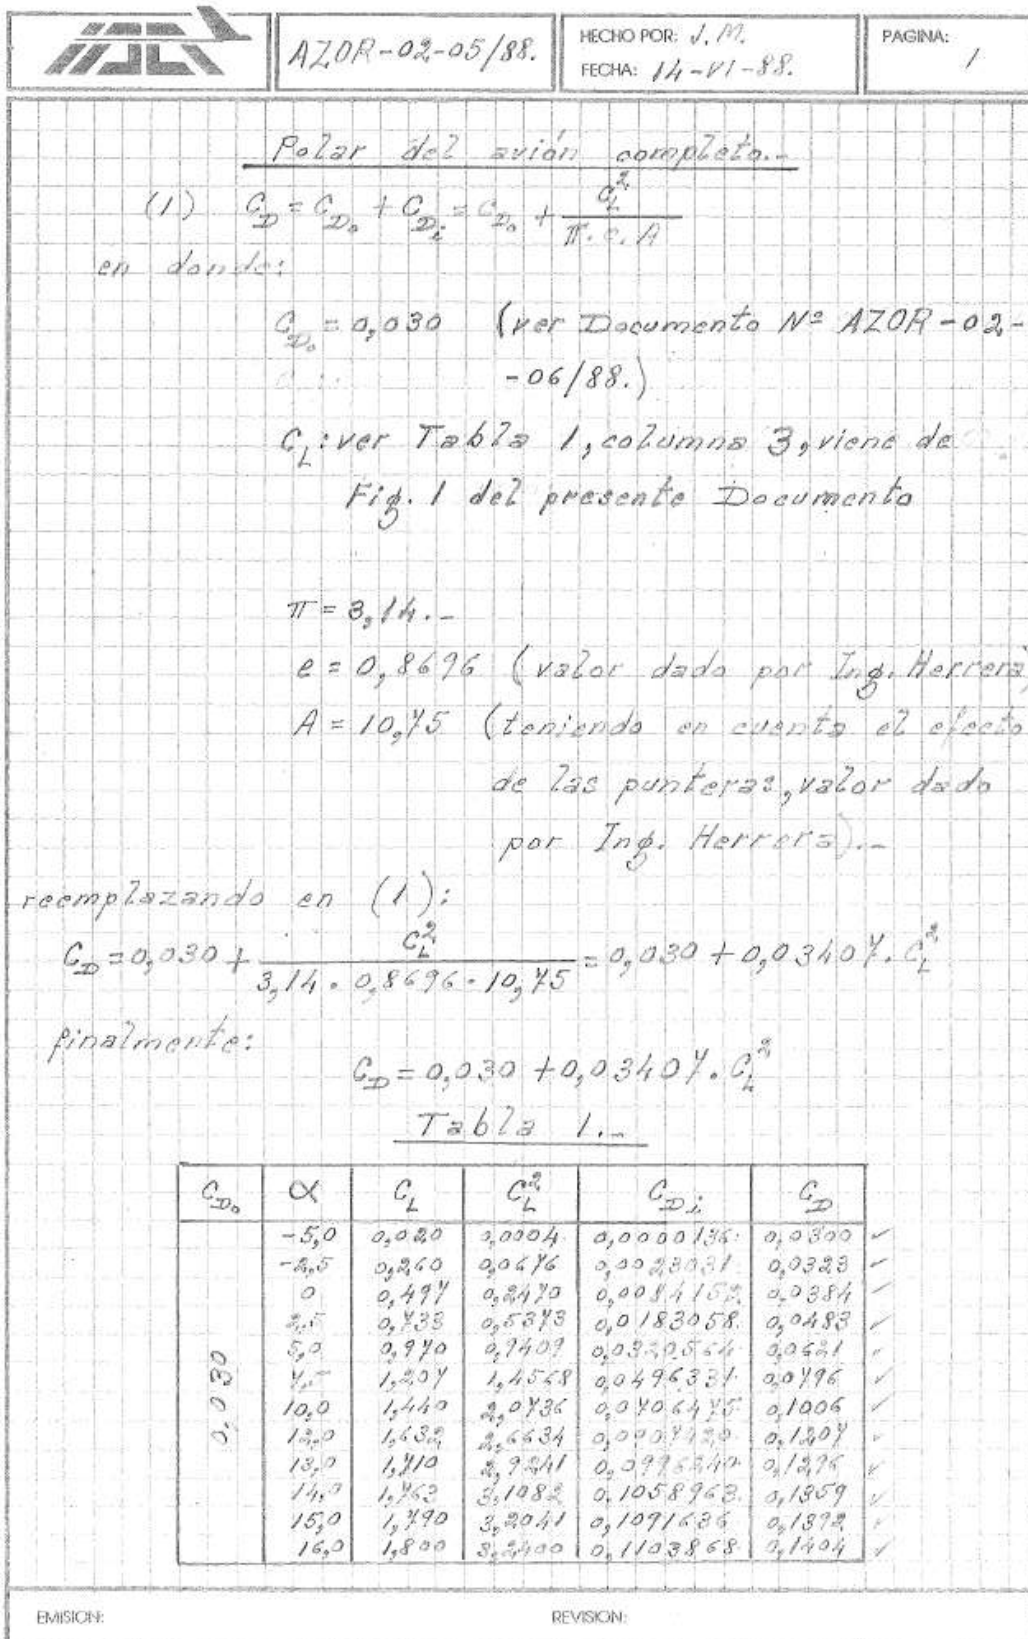 AZOR-02-05/88.
HECHO POR: J. M.
FECHA: 14-VI-88.
PAGINA:
1
Polar del avión completo.-
(1) C_D = C_D₀ + C_Dᵢ = C_D₀ + C_L² / π.e.A
en donde:
C_D₀ = 0,030 (ver Documento Nº AZOR-02-
-06/88.)
C_L: ver Tabla 1, columna 3, viene de
Fig. 1 del presente Documento
π = 3,14.-
e = 0,8696 (valor dado por Ing. Herrera)
A = 10,75 (teniendo en cuenta el efecto
de las punteras, valor dado
por Ing. Herrera).-
reemplazando en (1):
C_D = 0,030 + C_L² / 3,14 . 0,8696 . 10,75 = 0,030 + 0,03407. C_L²
finalmente:
C_D = 0,030 + 0,03407. C_L²
Tabla 1.-
C_D₀ α C_L C_L² C_Dᵢ C_D
0,030
-5,0 0,020 0,0004 0,0000136 0,0300 ✓
-2,5 0,260 0,0676 0,0023031 0,0323 ✓
0 0,497 0,2470 0,0084152 0,0384 ✓
2,5 0,733 0,5373 0,0183058 0,0483 ✓
5,0 0,970 0,9409 0,0320564 0,0621 ✓
7,5 1,207 1,4568 0,0496331 0,0796 ✓
10,0 1,440 2,0736 0,0706475 0,1006 ✓
12,0 1,632 2,6634 0,0907420 0,1207 ✓
13,0 1,710 2,9241 0,0996240 0,1296 ✓
14,0 1,763 3,1082 0,1058963 0,1359 ✓
15,0 1,790 3,2041 0,1091636 0,1392 ✓
16,0 1,800 3,2400 0,1103868 0,1404 ✓
EMISION:
REVISION: